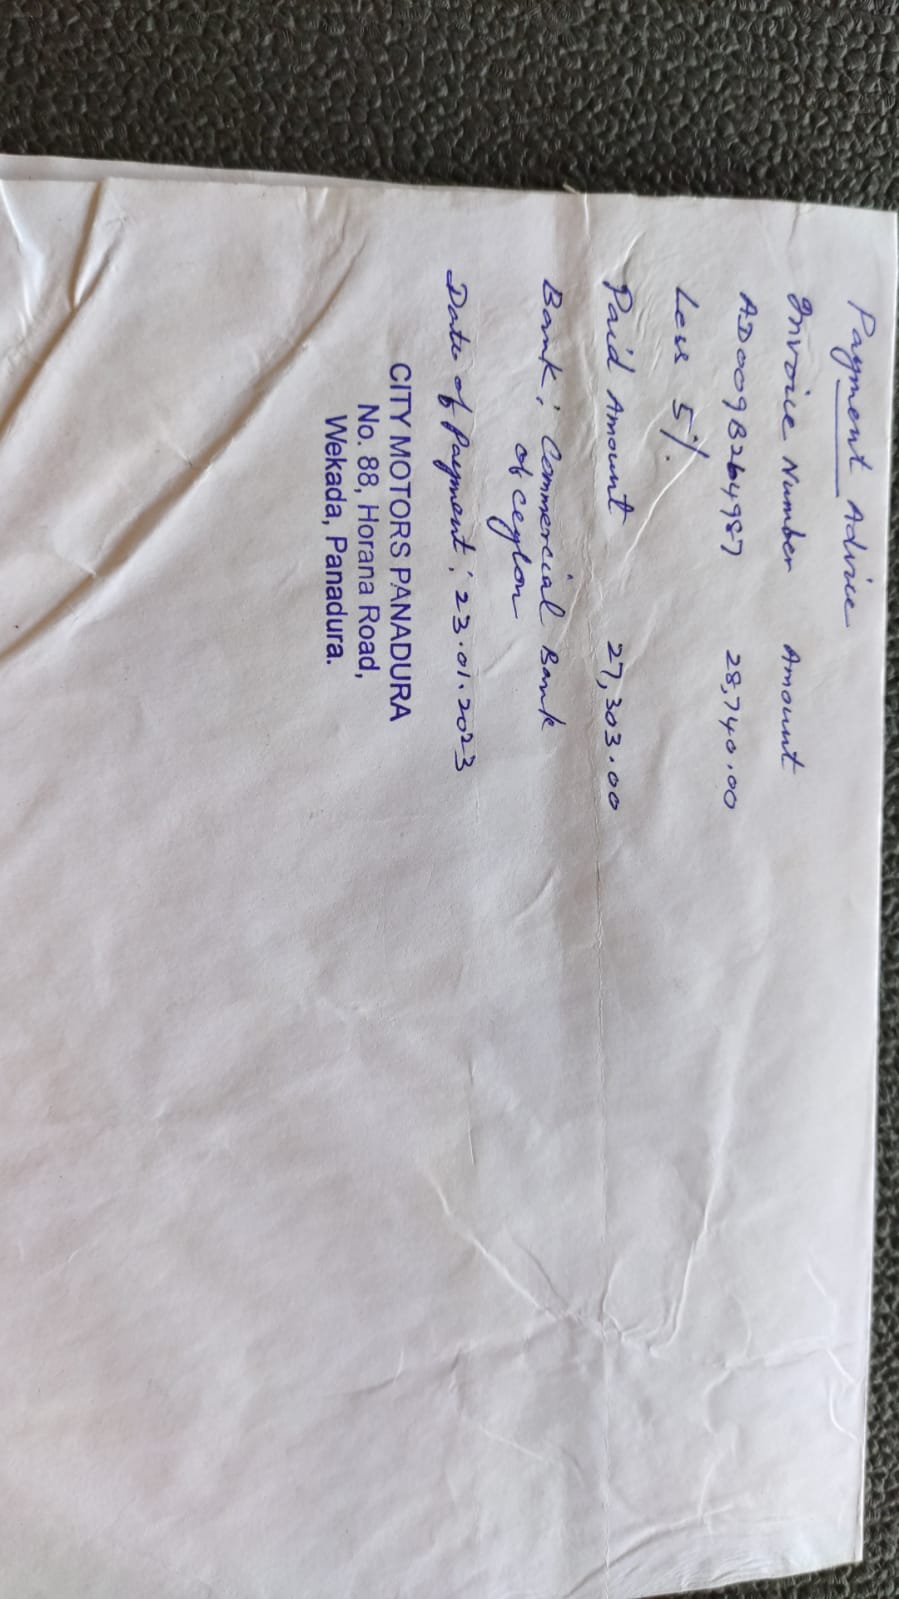 Payment Advice
Invoice Number Amount
AD009B264987 28,740.00
Less 5%
Paid Amount 27,303.00
Bank : Commercial Bank
of ceylon
Date of Payment : 23.01.2023
CITY MOTORS PANADURA
No. 88, Horana Road,
Wekada, Panadura.